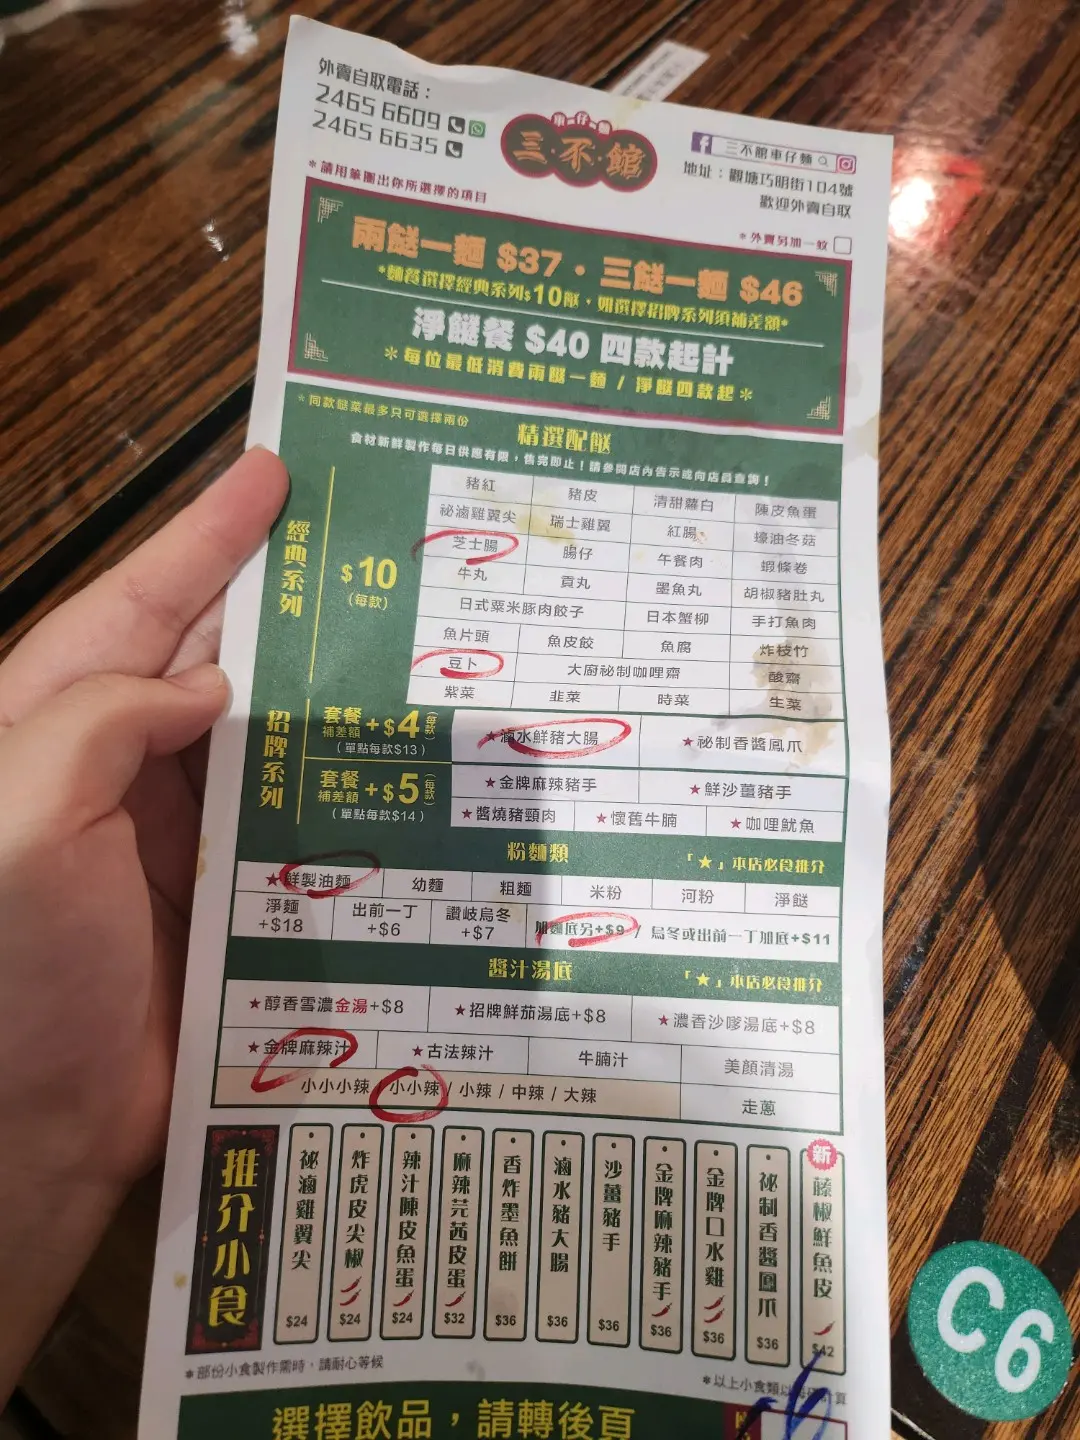 外賣自取電話：
2465 6609
2465 6635
車仔麵
三·不·館
三不館車仔麵
地址：觀塘巧明街104號
歡迎外賣自取
*請用筆圈出你所選擇的項目
*外賣另加一蚊
兩餸一麵 $37・三餸一麵 $46
*麵餐選擇經典系列$10餸，如選擇招牌系列須補差額*
淨餸餐 $40 四款起計
*每位最低消費兩餸一麵 / 淨餸四款起*
*同款餸菜最多只可選擇兩份
精選配餸
食材新鮮製作每日供應有限，售完即止！請參閱店內告示或向店員查詢！
經典系列
$10
(每款)
豬紅 豬皮 清甜蘿白 陳皮魚蛋
祕滷雞翼尖 瑞士雞翼 紅腸 蠔油冬菇
芝士腸 腸仔 午餐肉 蝦條卷
牛丸 貢丸 墨魚丸 胡椒豬肚丸
日式粟米豚肉餃子 日本蟹柳 手打魚肉
魚片頭 魚皮餃 魚腐 炸枝竹
豆卜 大廚祕制咖哩齋 酸齋
紫菜 韭菜 時菜 生菜
招牌系列
套餐補差額 +$4 (每款)
(單點每款$13)
★滷水鮮豬大腸 ★祕制香醬鳳爪
套餐補差額 +$5 (每款)
(單點每款$14)
★金牌麻辣豬手 ★鮮沙薑豬手
★醬燒豬頸肉 ★懷舊牛腩 ★咖哩魷魚
粉麵類 「★」本店必食推介
★鮮製油麵 幼麵 粗麵 米粉 河粉 淨餸
淨麵+$18 出前一丁+$6 讚岐烏冬+$7 加麵底另+$9 / 烏冬或出前一丁加底+$11
醬汁湯底 「★」本店必食推介
★醇香雪濃金湯+$8 ★招牌鮮茄湯底+$8 ★濃香沙嗲湯底+$8
★金牌麻辣汁 ★古法辣汁 牛腩汁 美顏清湯
小小小辣 / 小小辣 / 小辣 / 中辣 / 大辣 走蔥
推介小食
祕滷雞翼尖 $24
炸虎皮尖椒 $24
辣汁陳皮魚蛋 $24
麻辣芫茜皮蛋 $32
香炸墨魚餅 $36
滷水豬大腸 $36
沙薑豬手 $36
金牌麻辣豬手 $36
金牌口水雞 $36
祕制香醬鳳爪 $36
新
藤椒鮮魚皮 $42
*部份小食製作需時，請耐心等候
*以上小食類以
選擇飲品，請轉後頁
C6